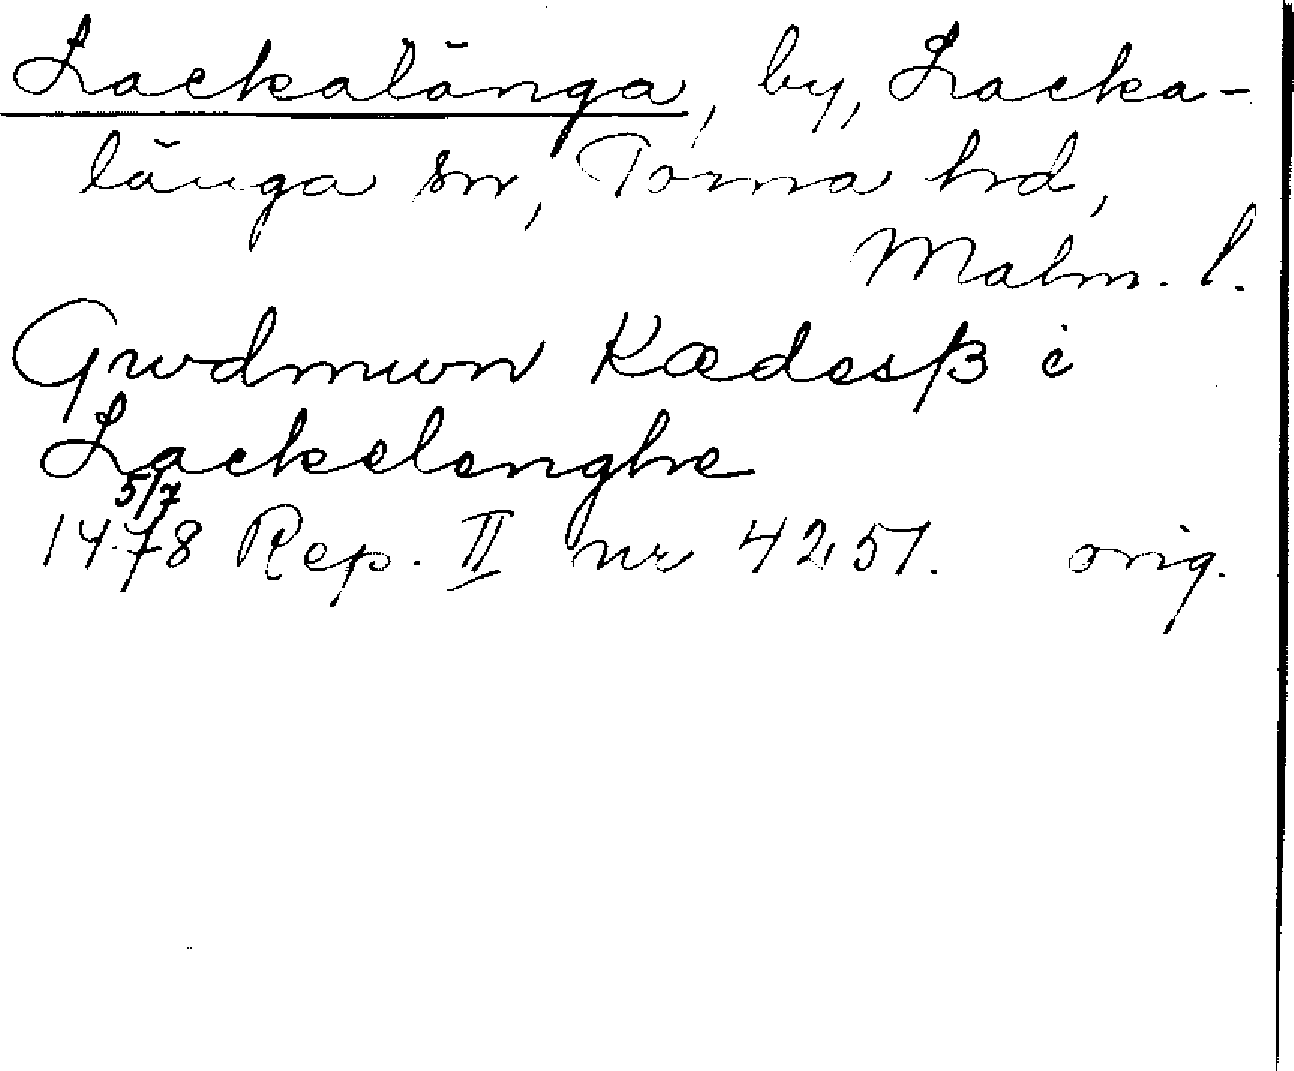 Lackalänga, by, Lacka-
länga sn, Torna hd,
Malm. l.
Gwdmwn Kædesß i
Lackelenghe
5/7
1478 Rep. II nr 4251. orig.